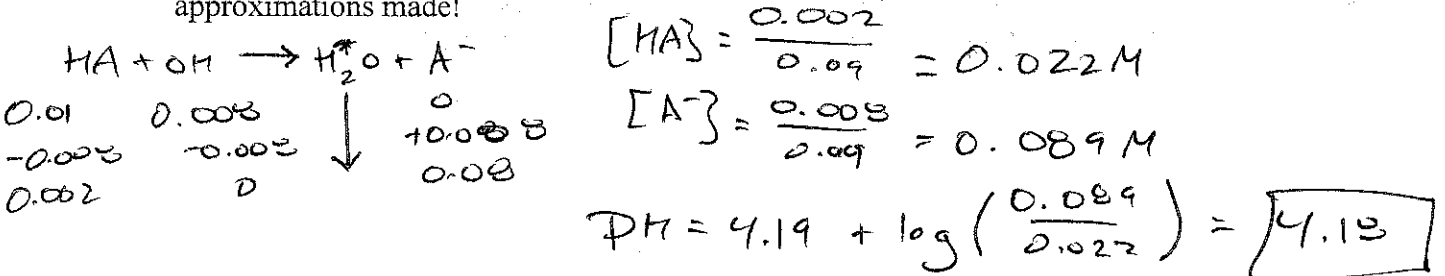 approximations made!
HA + OH → H₂O + A⁻
0.01 0.008 0
-0.008 -0.008 +0.008
0.002 0 0.08
[HA] = 0.002 / 0.09 = 0.022 M
[A⁻] = 0.008 / 0.09 = 0.089 M
pH = 4.19 + log ( 0.089 / 0.022 ) = 4.18